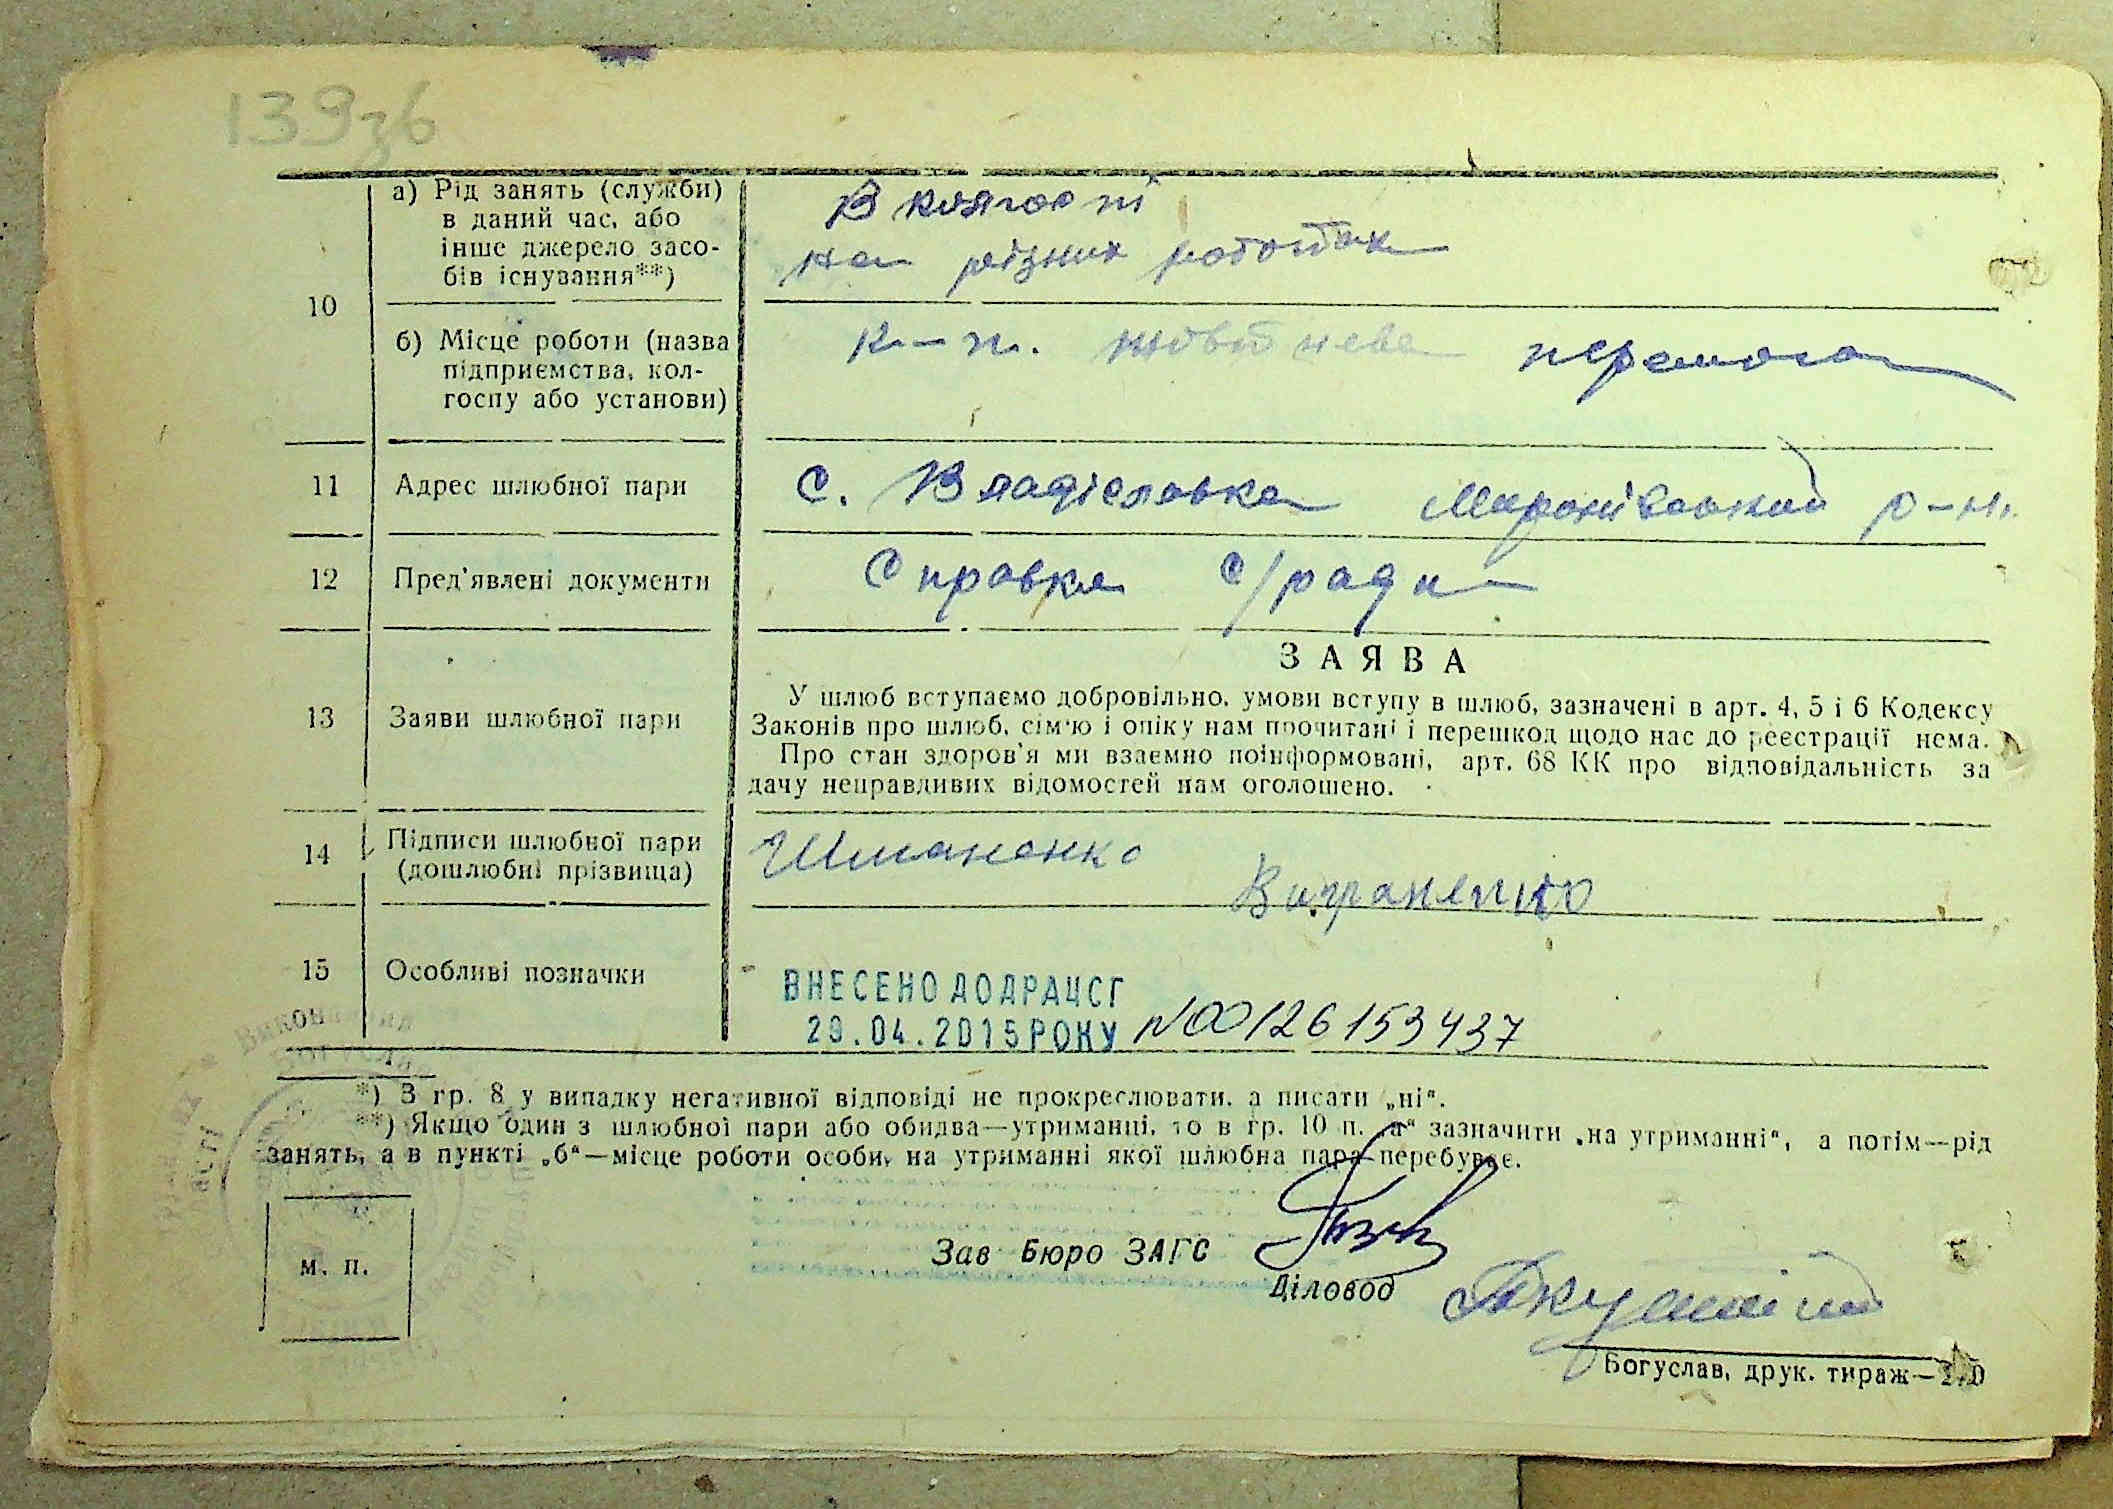 139зб
а) Рід занять (служби)
в даний час, або
інше джерело засо-
бів існування**)
В колгоспі
на різних роботах
10
б) Місце роботи (назва
підприємства, кол-
госпу або установи)
к-п. жовтнева перемога
11 Адрес шлюбної пари с. Владіславка Миронівський р-н.
12 Пред'явлені документи Справка с/ради
ЗАЯВА
13 Заяви шлюбної пари
У шлюб вступаємо добровільно, умови вступу в шлюб, зазначені в арт. 4, 5 і 6 Кодексу
Законів про шлюб, сім'ю і опіку нам прочитані і перешкод щодо нас до реєстрації нема.
Про стан здоров'я ми взаємно поінформовані, арт. 68 КК про відповідальність за
дачу неправдивих відомостей нам оголошено.
14 Підписи шлюбної пари
(дошлюбні прізвища)
15 Особливі позначки
ВНЕСЕНО ДО ДРАЦСГ
29.04.2015 РОКУ №00126153437
*) В гр. 8 у випадку негативної відповіді не прокреслювати, а писати „ні".
**) Якщо один з шлюбної пари або обидва—утриманці, то в гр. 10 п. „а" зазначити „на утриманні", а потім—рід
занять, а в пункті „б"—місце роботи особи, на утриманні якої шлюбна пара перебуває.
м. п.
Зав Бюро ЗАГС
Діловод
Богуслав, друк. тираж—